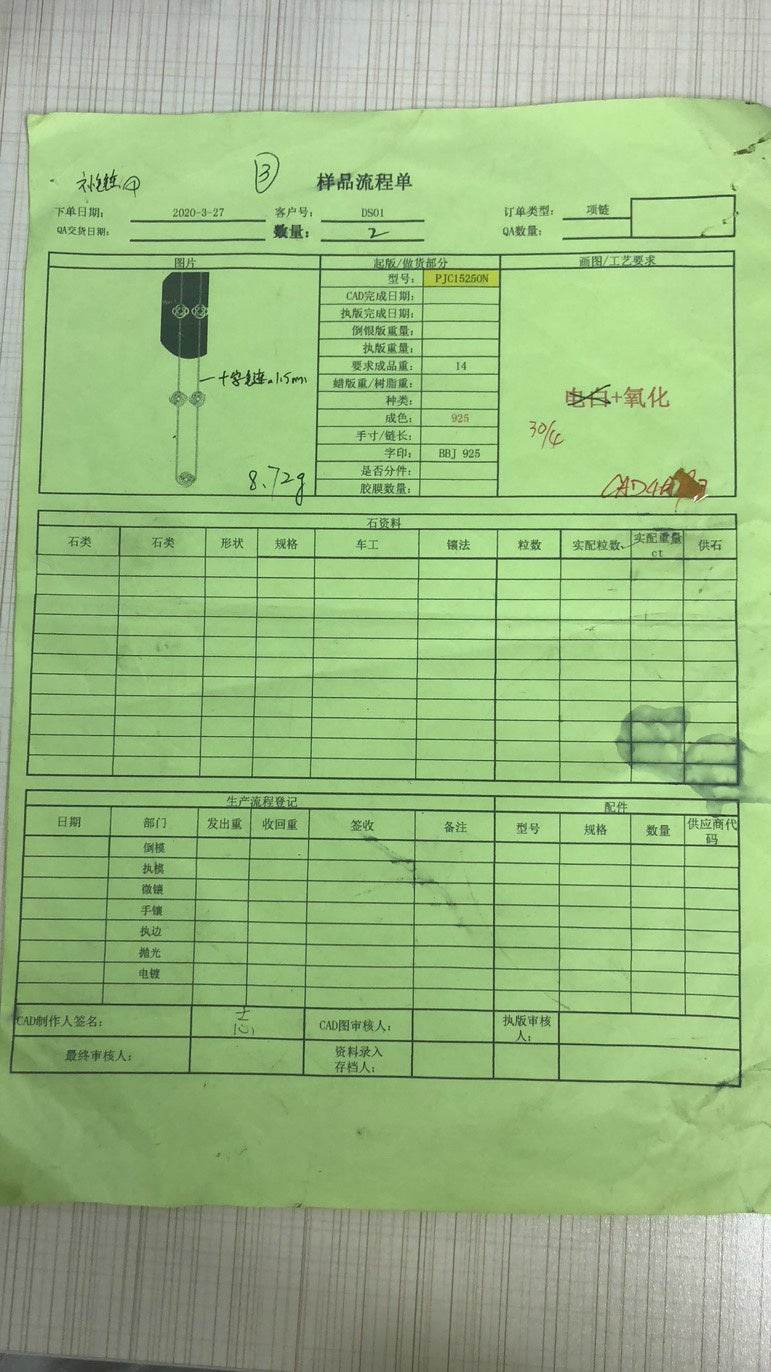 ③ 样品流程单
下单日期： 2020-3-27 客户号： DS01 订单类型： 项链
QA交货日期： 数量： 2 QA数量：
图片 起版/做货部分 画图/工艺要求
型号： PJC15250N
CAD完成日期：
执版完成日期：
倒银版重量：
执版重量：
要求成品重： 14
蜡版重/树脂重：
种类：
成色： 925
手寸/链长：
字印： BBJ 925
是否分件：
胶膜数量：
十字链
8.72g
电白+氧化
30/4
石资料
石类 石类 形状 规格 车工 镶法 粒数 实配粒数 实配重量ct 供石
生产流程登记 配件
日期 部门 发出重 收回重 签收 备注 型号 规格 数量 供应商代码
倒模
执模
微镶
手镶
执边
抛光
电镀
CAD制作人签名： CAD图审核人： 执版审核人：
最终审核人： 资料录入存档人：